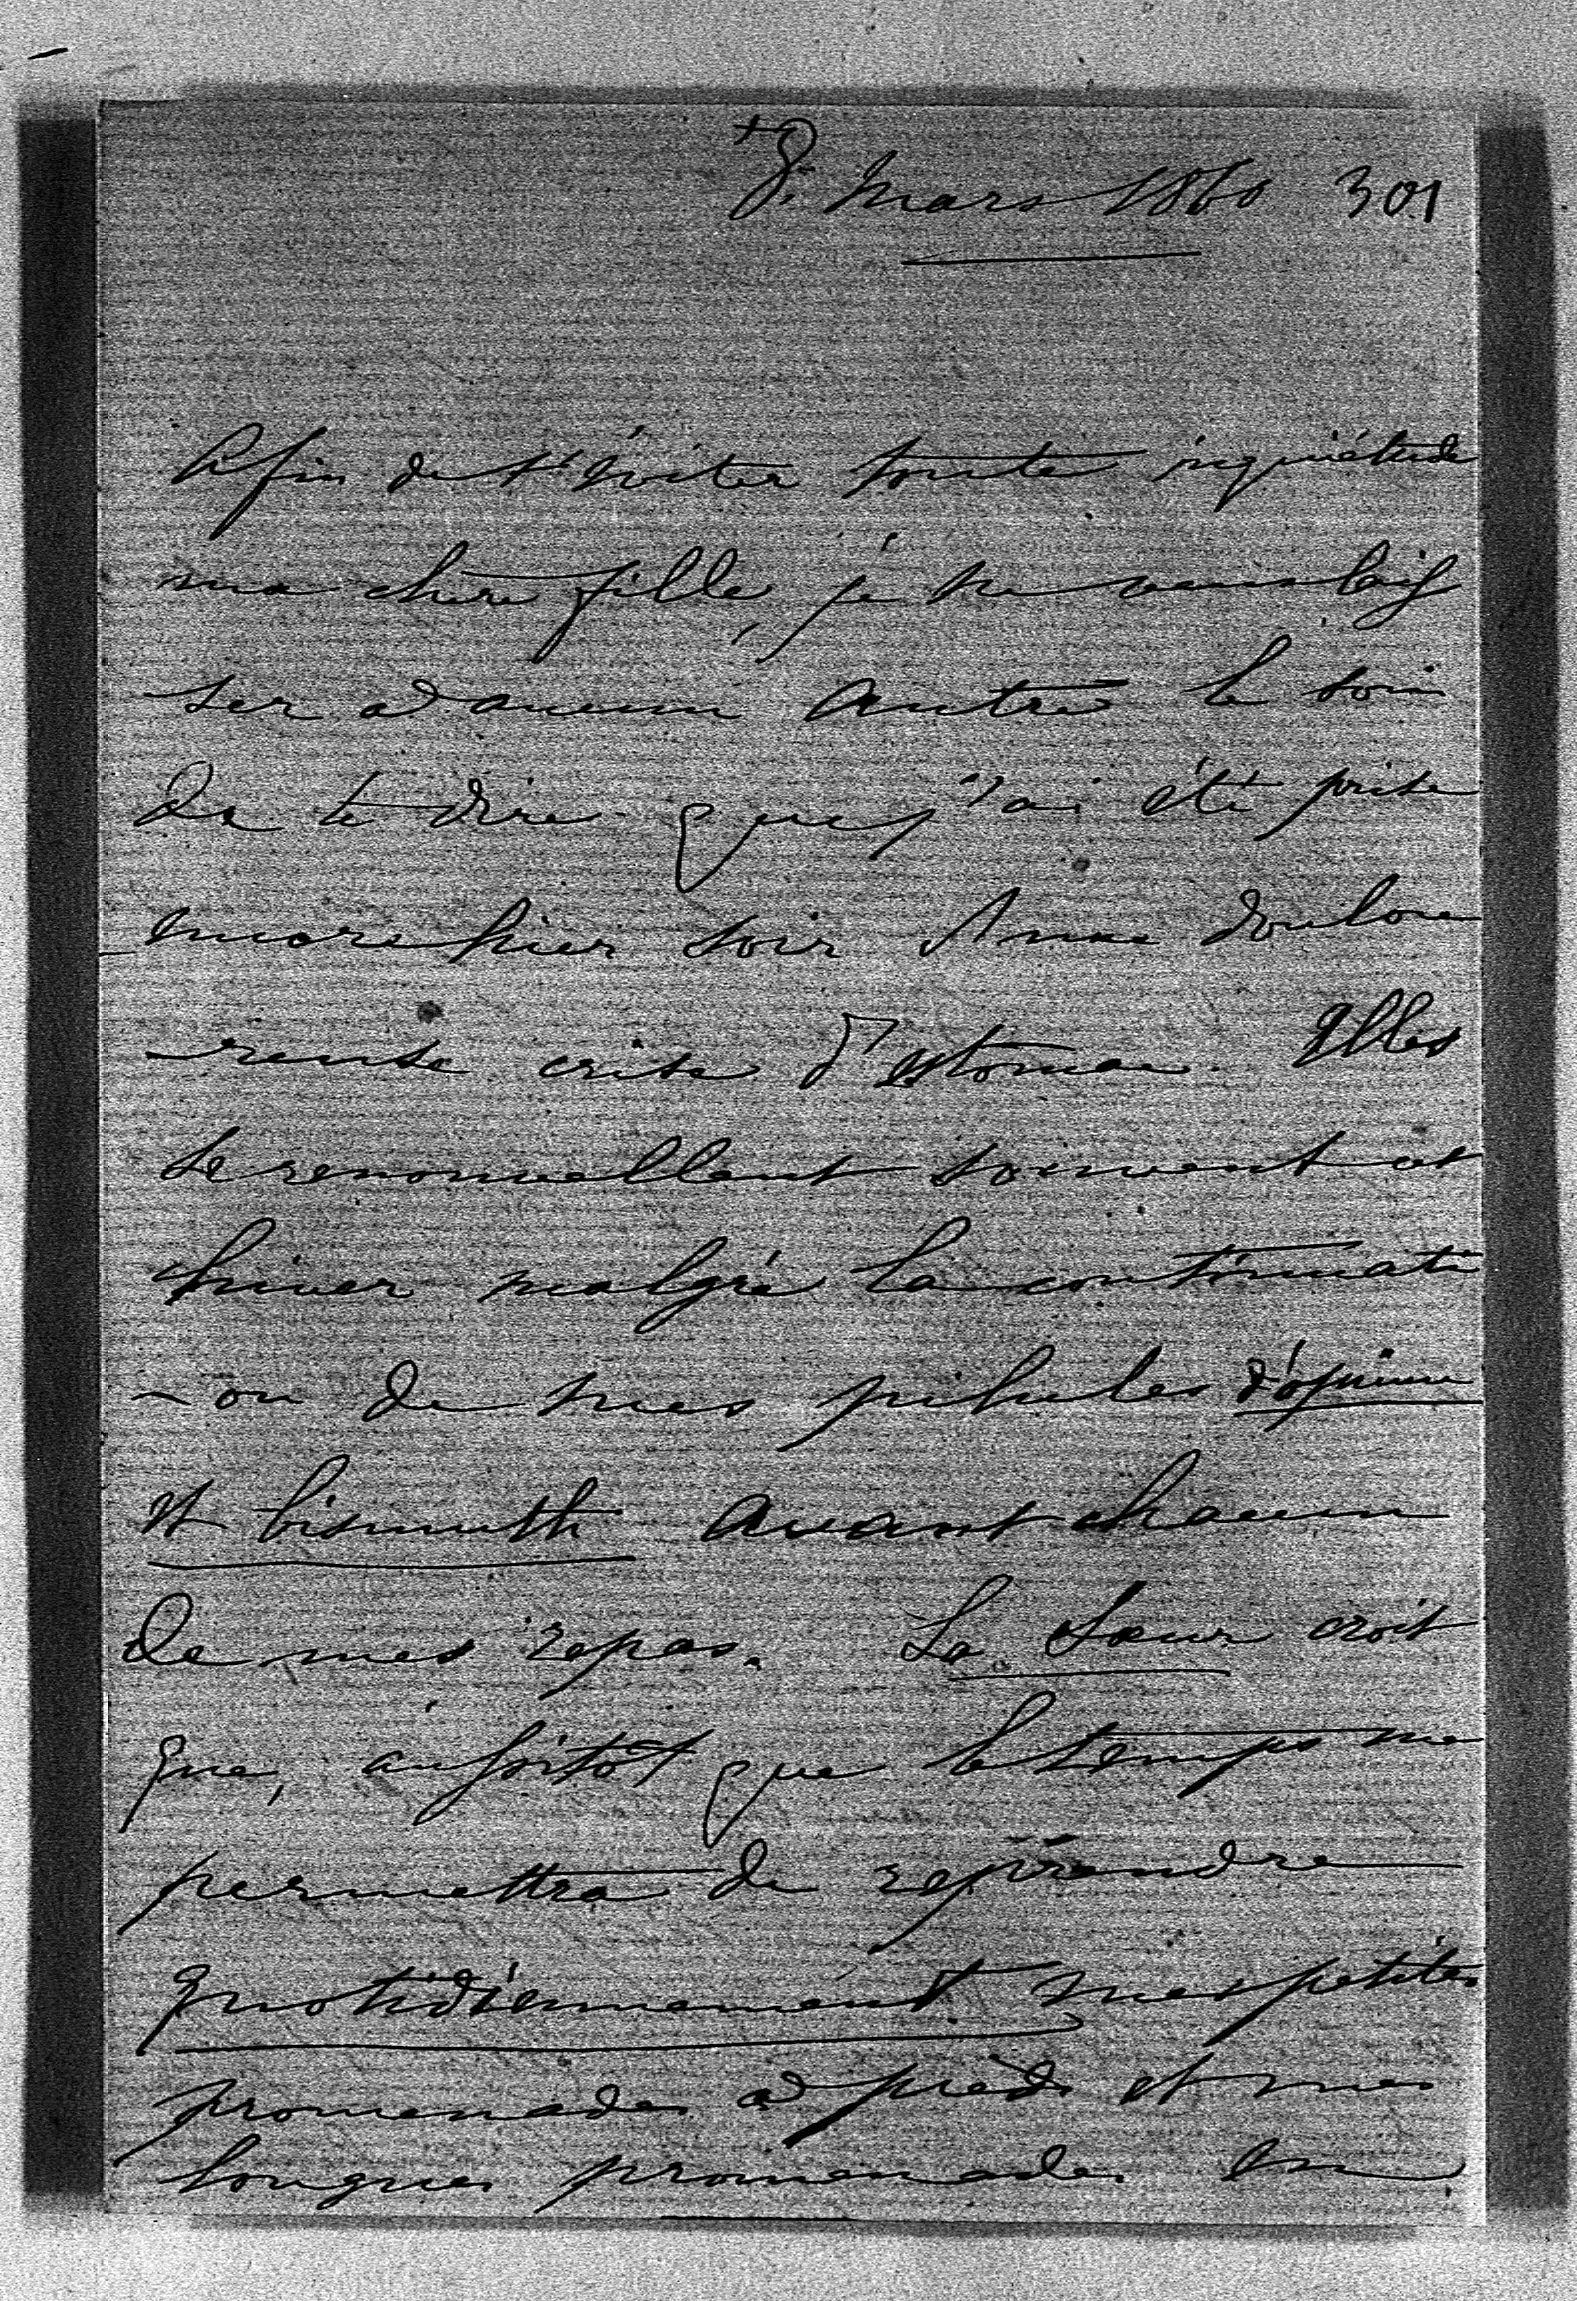 8. Mars 1860 301
Afin de t'éviter toute inquiétude
ma chère fille, je ne veux lais
ser à aucun autre le soin
de te dire que j'ai été prise
encore hier soir d'une doulou
reuse crise d'estomac. Elles
se renouvellent souvent cet
hiver malgré la continuati
-on de mes pilules d'opium
et bismuth avant chacun
de mes repas. La Sœur croit
que, aussitôt que le temps me
permettra de reprendre
quotidiennement mes petites
promenades à pieds et mes
longues promenades en